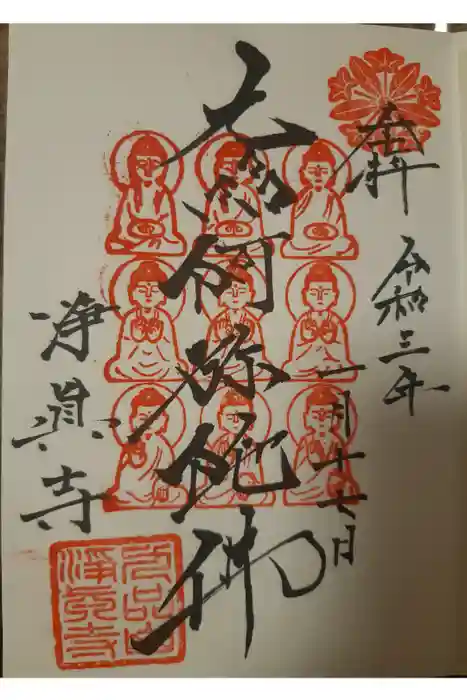 奉拝
令和三年
一月十七日
阿弥陀佛
浄眞寺
九品山
淨眞寺